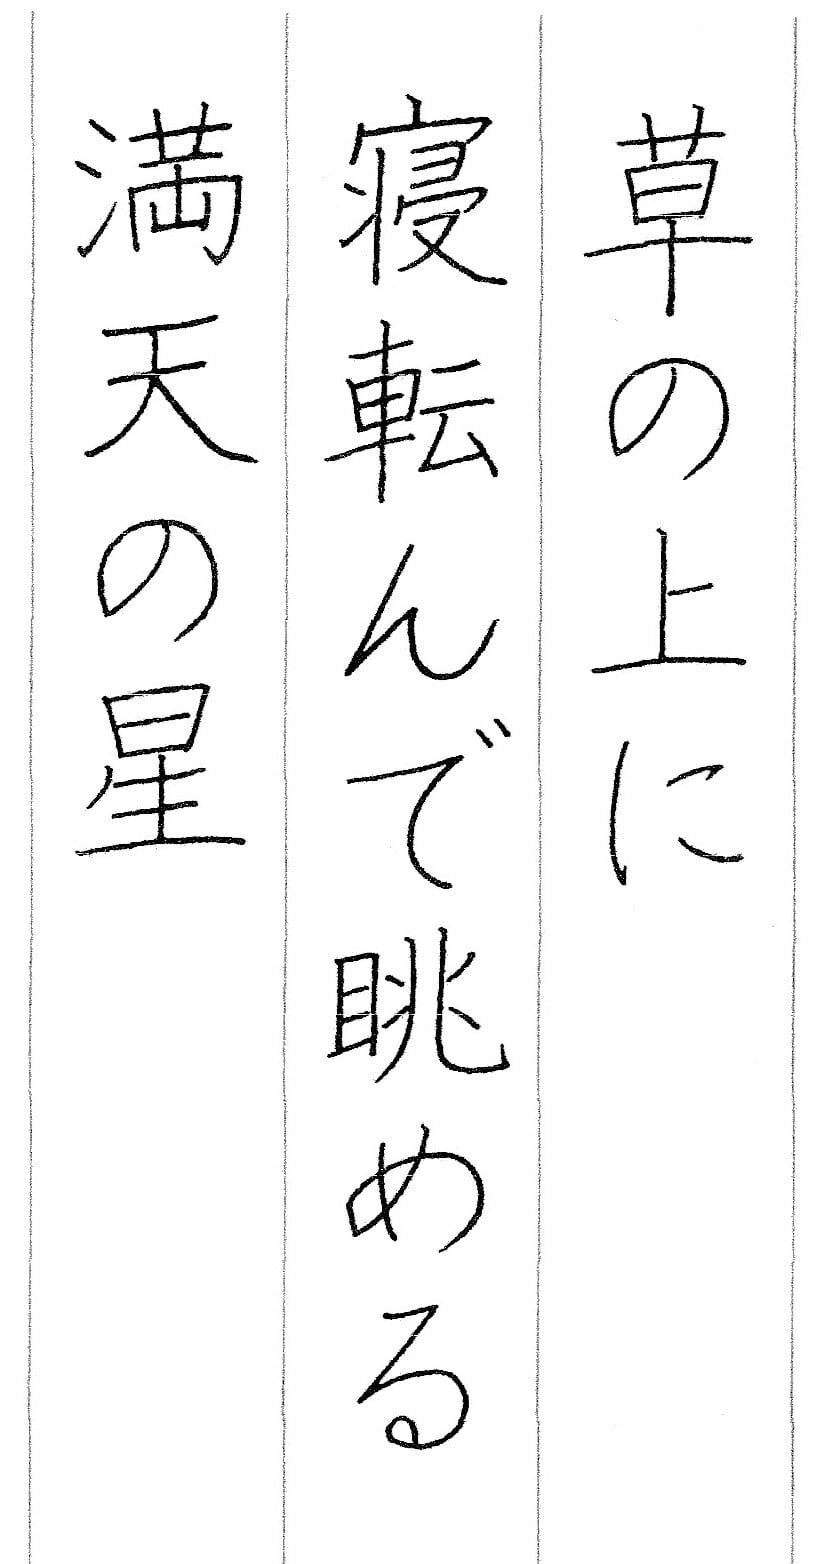 草の上に
寝転んで眺める
満天の星